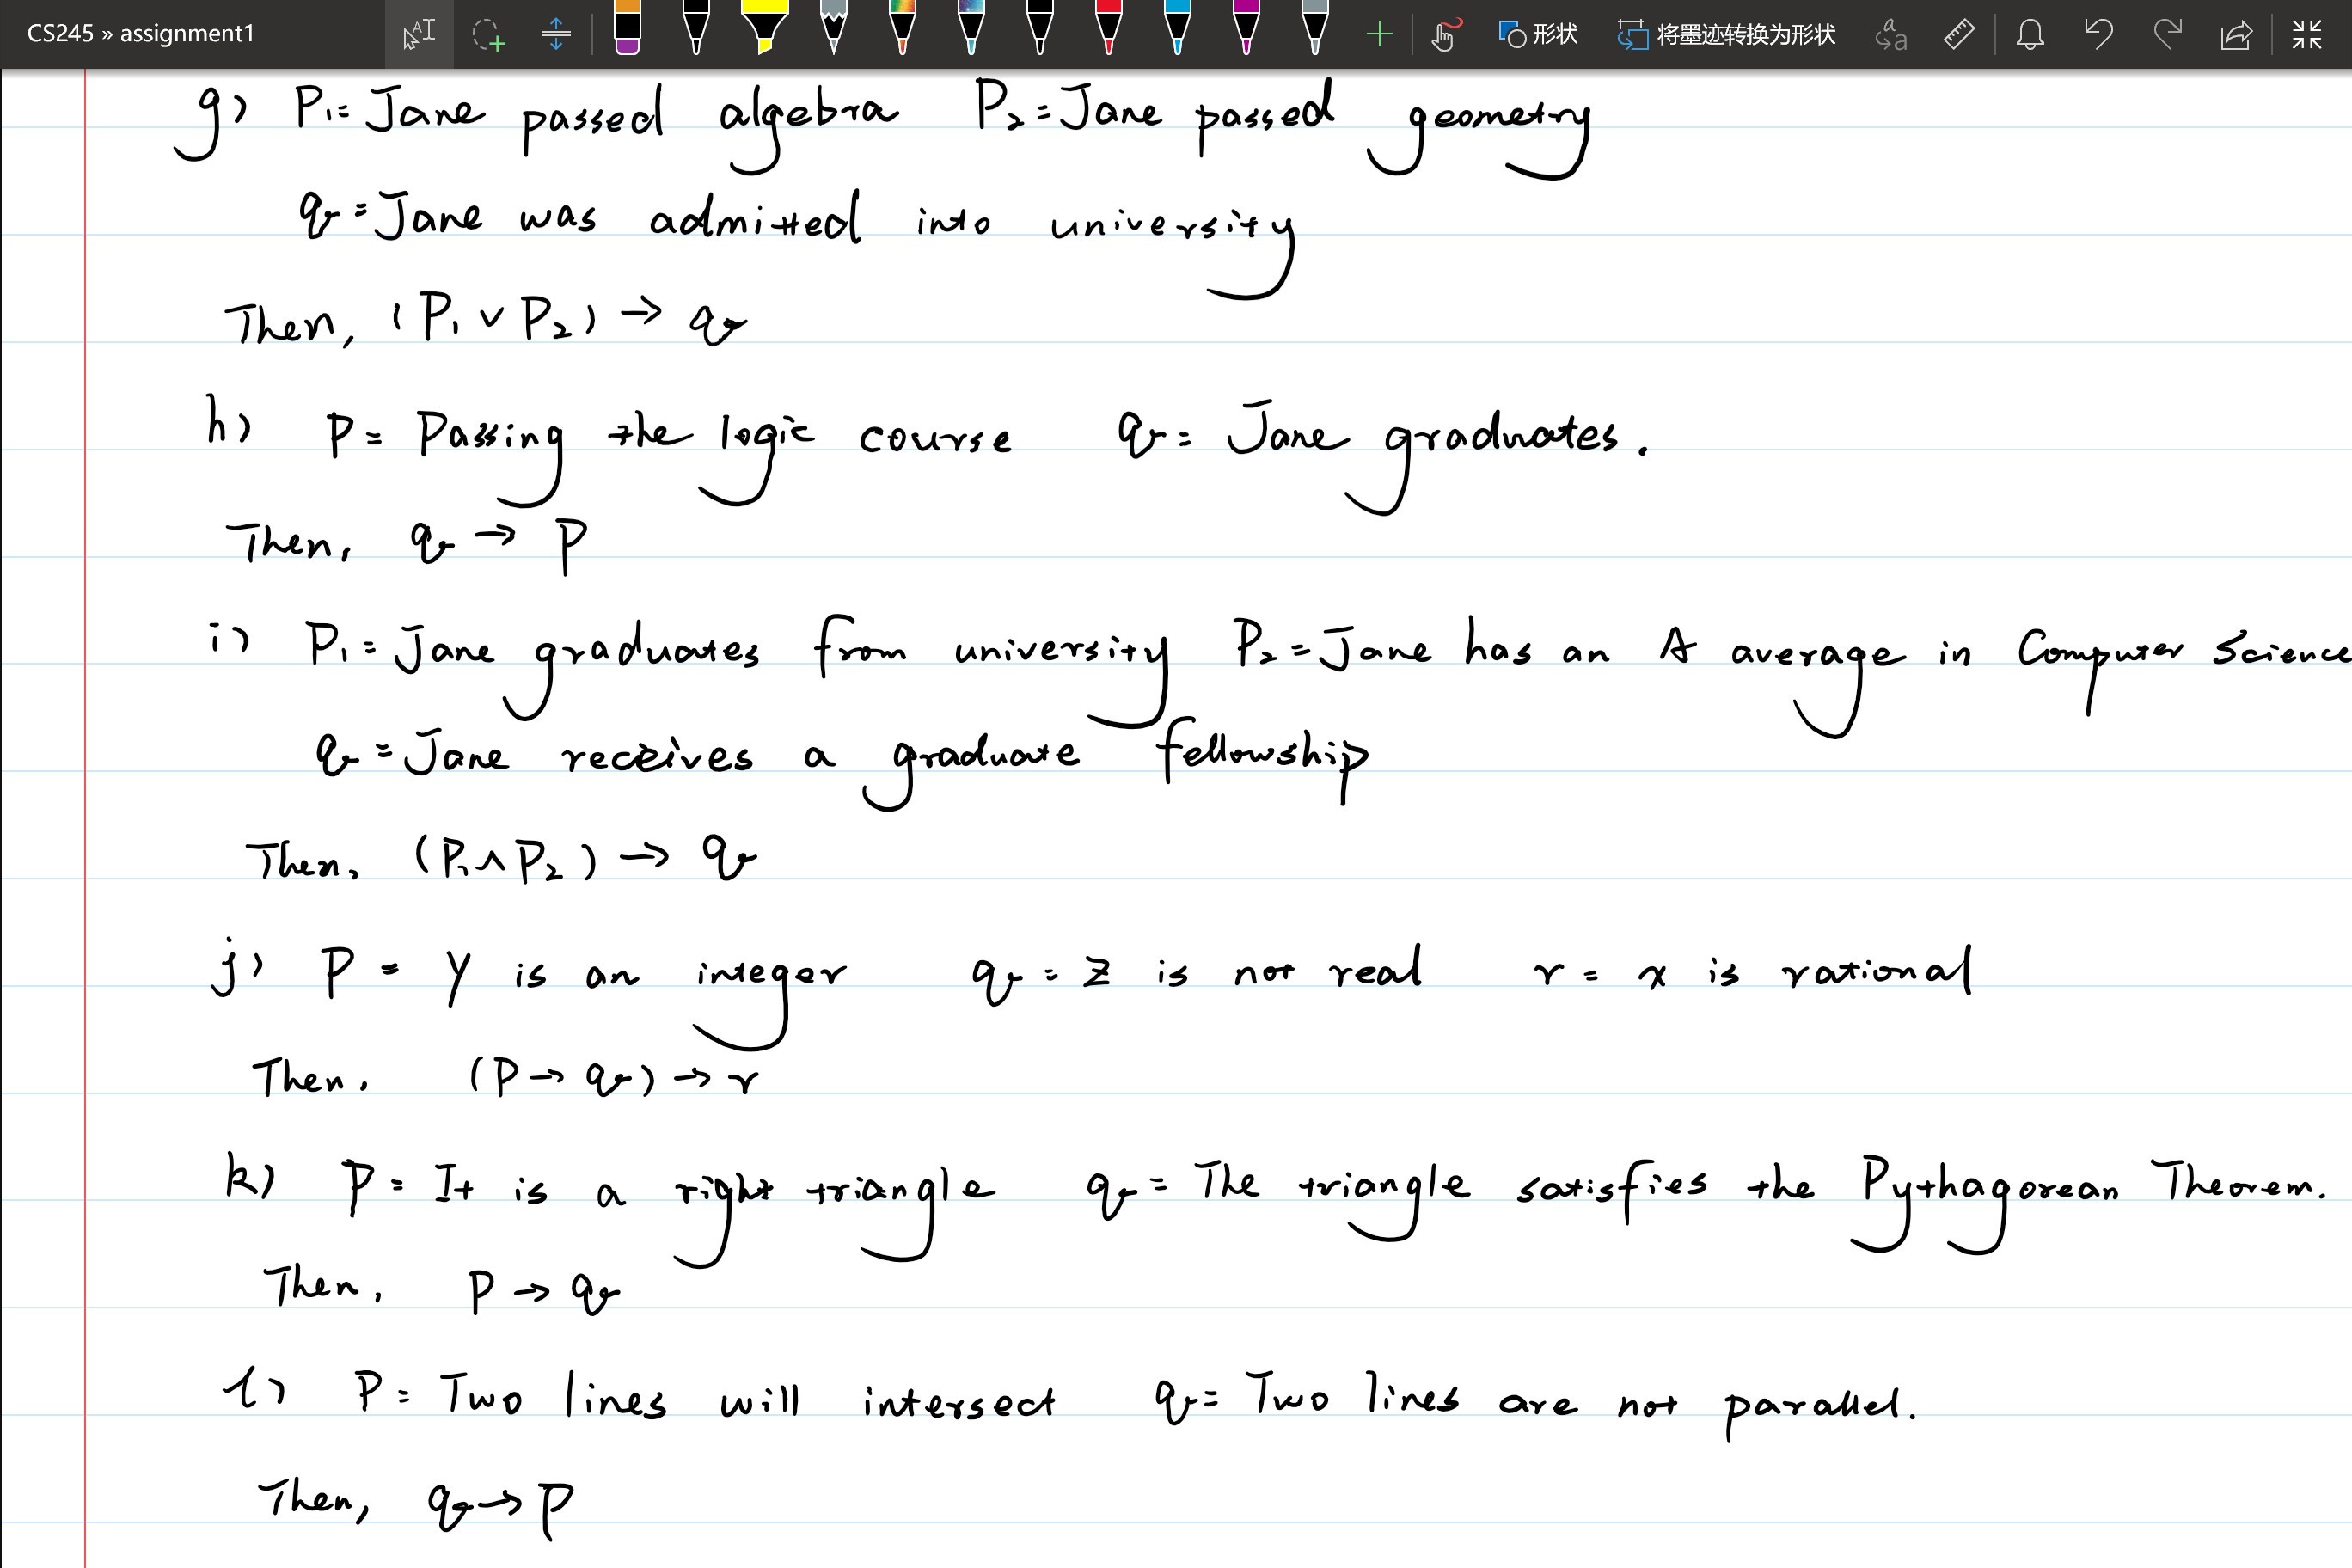 CS245 » assignment1
形状
将墨迹转换为形状
g) P₁= Jane passed algebra P₂= Jane passed geometry
q = Jane was admitted into university
Then, (P₁ ∨ P₂) → q
h) P = Passing the logic course q = Jane graduates.
Then, q → P
i) P₁ = Jane graduates from university P₂ = Jane has an A average in Computer Science
q = Jane receives a graduate fellowship
Then, (P₁ ∧ P₂) → q
j) P = Y is an integer q = Z is not real r = x is rational
Then, (P → q) → r
k) P = It is a right triangle q = The triangle satisfies the Pythagorean Theorem.
Then, P → q
l) P = Two lines will intersect q = Two lines are not parallel.
Then, q → P